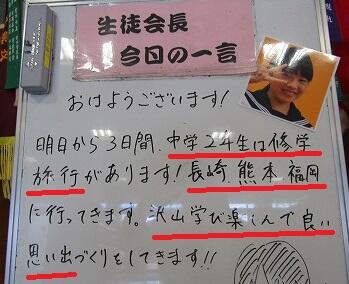 生徒会長
今日の一言
おはようございます!
明日から3日間、中学2年生は修学
旅行があります!長崎、熊本、福岡
に行ってきます。沢山学び楽しんで良い
思い出づくりをしてきます!!